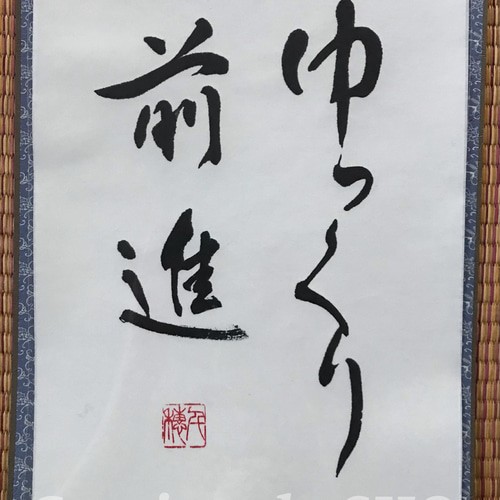 ゆっくり
前進